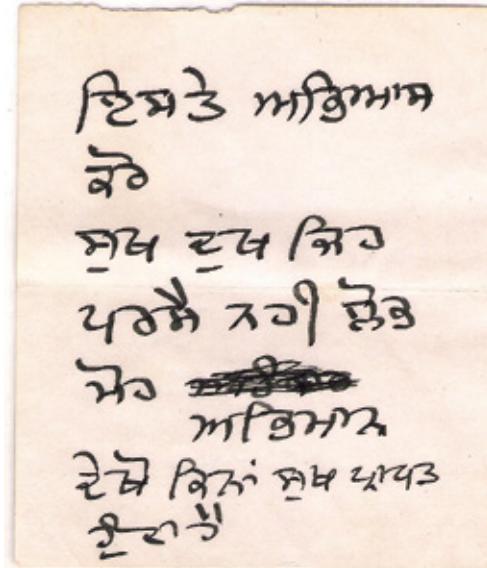 ਇਸਤੇ ਅਭਿਆਸ
ਕਰੋ
ਸੁਖ ਦੁਖ ਜਿਹ
ਪਰਸੈ ਨਹੀ ਲੋਭ
ਮੋਹ
ਅਭਿਮਾਨ
ਦੇਖੋ ਕਿਨਾਂ ਸੁਖ ਪ੍ਰਾਪਤ
ਹੁੰਦਾ ਹੈ